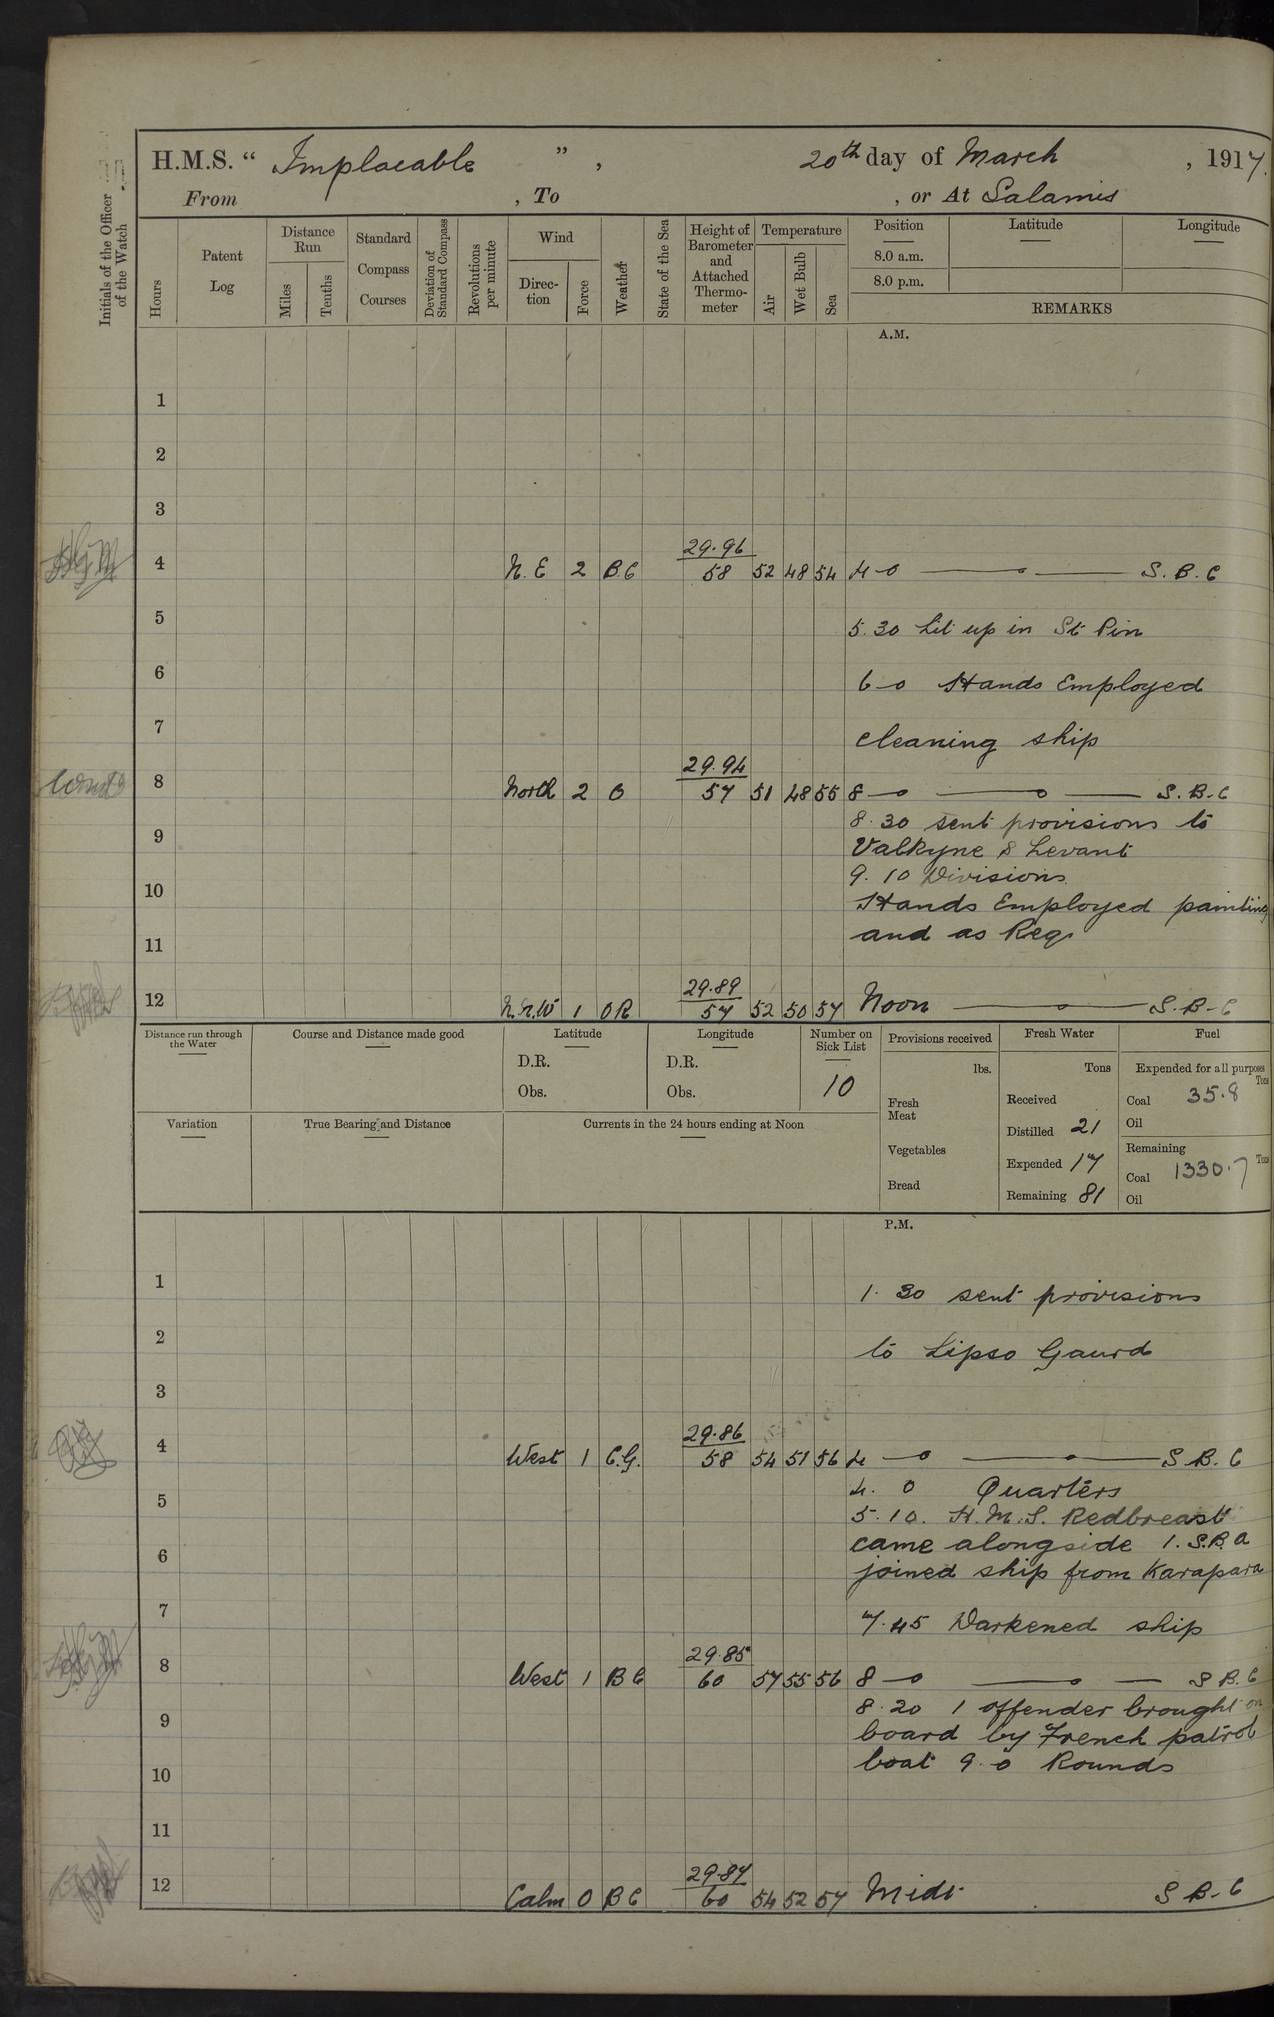 H.M.S. " Implacable " , 20th day of March , 1917.
From , To , or At Salamis
Initials of the Officer of the Watch
Hours
Patent Log
Distance Run
Miles
Tenths
Standard Compass Courses
Deviation of Standard Compass
Revolutions per minute
Wind
Direc-tion
Force
Weather
State of the Sea
Height of Barometer and Attached Thermo-meter
Temperature
Air
Wet Bulb
Sea
Position Latitude Longitude
8.0 a.m.
8.0 p.m.
REMARKS
A.M.
1
2
3
29.96
4 N.E 2 B.C 58 52 48 54 4-0 S.B.C
5 5.30 Lit up in St Pin
6 6-0 Hands Employed
7 cleaning ship
29.94
8 North 2 O 57 51 48 55 8-0 S.B.C
8.30 sent provisions to
9 Valkyne & Levant
9.10 Divisions
10 Hands Employed painting
11 and as Req.
29.89
12 N.N.W 1 OR 57 52 50 57 Noon S.B.C
Distance run through the Water
Course and Distance made good
Latitude
D.R.
Obs.
Longitude
D.R.
Obs.
Number on Sick List
10
Provisions received
lbs.
Fresh Meat
Vegetables
Bread
Fresh Water
Tons
Received
Distilled 21
Expended 17
Remaining 81
Fuel
Expended for all purposes
Tons
Coal 35.8
Oil
Remaining
Tons
Coal 1330.7
Oil
Variation
True Bearing and Distance
Currents in the 24 hours ending at Noon
P.M.
1 1.30 sent provisions
2 to Lipso Gaurd
3
29.86
4 West 1 C.G. 58 54 51 56 4-0 S.B.C
4.0 Quarters
5 5.10. H.M.S. Redbreast
6 came alongside 1. S.B.A
joined ship from Karapara
7 7.45 Darkened ship
29.85
8 West 1 BC 60 57 55 56 8-0 S.B.C
8.20 1 offender brought on
9 board by French patrol
10 boat 9.0 Rounds
11
29.87
12 Calm 0 BC 60 54 52 57 Midt. S.B.C